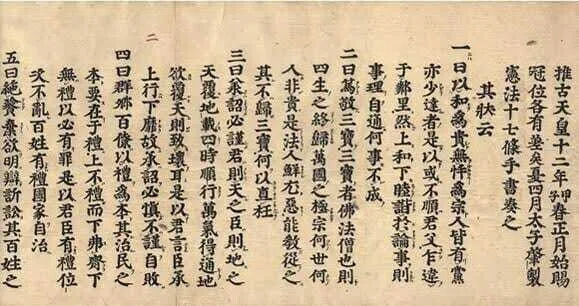 推古天皇十二年甲子春正月始賜
冠位各有差矣夏四月太子肇製
憲法十七條手書奏之
其狀云
一曰以和爲貴無忤爲宗人皆有黨
亦少達者是以或不順君父乍違
于鄰里然上和下睦諧於論事則
事理自通何事不成
二曰篤敬三寶三寶者佛法僧也則
四生之終歸萬國之極宗何世何
人非貴是法人鮮尤惡能教從之
其不歸三寶何以直枉
三曰承詔必謹君則天之臣則地之
天覆地載四時順行萬氣得通地
欲覆天則致壞耳是以君言臣承
上行下靡故承詔必慎不謹自敗
二
四曰群卿百僚以禮爲本其治民之
本要在于禮上不禮而下弗齊下
無禮以必有罪是以君臣有禮位
次不亂百姓有禮國家自治
五曰絶餮棄欲明辯訴訟其百姓之